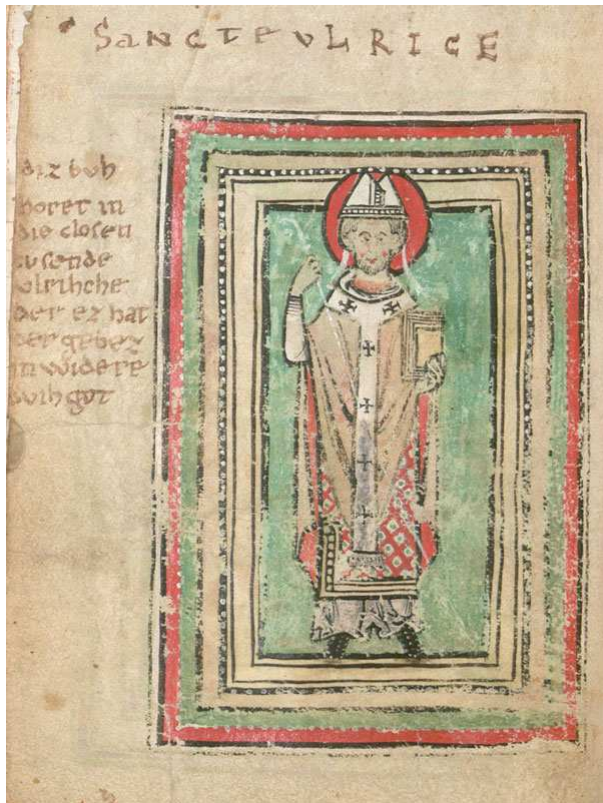 SANCTE VLRICE
diz bvh
horet in
die closen
zvsende
vlrihche
der ez hat
der gebez
in widere